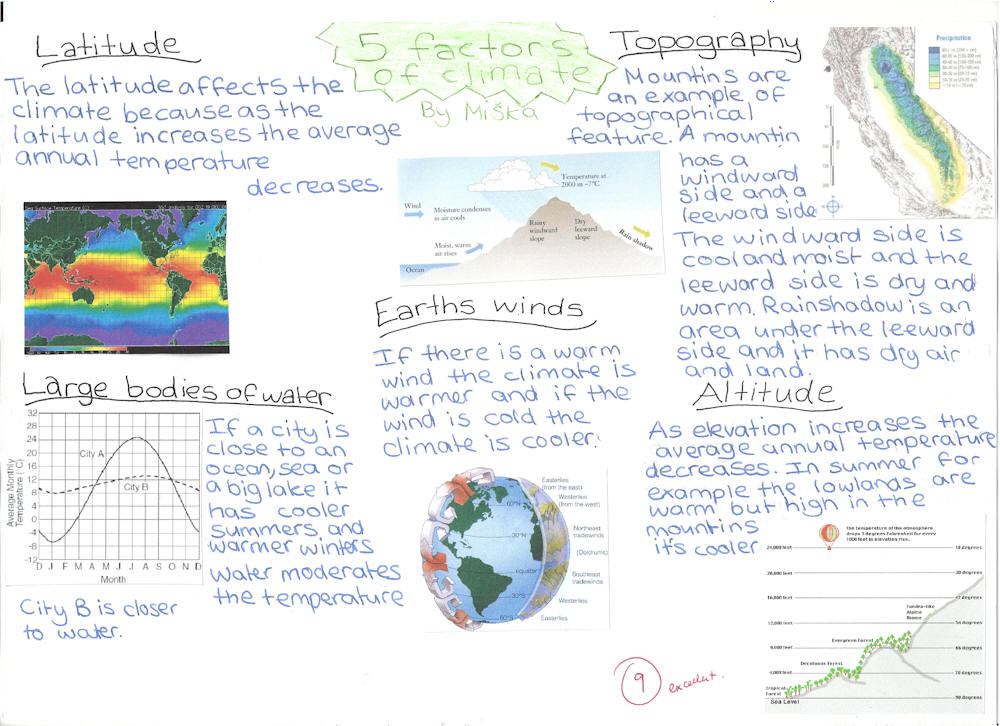 Latitude
The latitude affects the
climate because as the
latitude increases the average
annual temperature
decreases.
5 factors
of climate
By Miška
Topography
Mountins are
an example of
topographical
feature. A mountin
has a
windward
side and a
leeward side
The windward side is
cool and moist and the
leeward side is dry and
warm. Rainshadow is an
area under the leeward
side and it has dry air
and land.
Precipitation
Temperature at
2000 m –7°C
Wind
Moisture condenses
as air cools
Rainy
windward
slope
Dry
leeward
slope
Rain shadow
Moist, warm
air rises
Ocean
Sea Surface Temperature (C)
Earths winds
If there is a warm
wind the climate is
warmer and if the
wind is cold the
climate is cooler.
Easterlies
(from the east)
Westerlies
(from the west)
Northeast
tradewinds
(Doldrums)
Southeast
tradewinds
Westerlies
Easterlies
60°N
30°N
equator
30°S
60°S
Large bodies of water
32
28
24
20
16
12
8
4
0
-4
-8
-12
Average Monthly
Temperature (°C)
City A
City B
D J F M A M J J A S O N D
Month
If a city is
close to an
ocean, sea or
a big lake it
has cooler
summers, and
warmer winters
Water moderates
the temperature
City B is closer
to water.
Altitude
As elevation increases the
average annual temperature
decreases. In summer for
example the lowlands are
warm but high in the
mountins
it's cooler
The temperature of the atmosphere
drops 3 degrees Fahrenheit for every
1000 feet in elevation rise.
24,000 feet
18 degrees
20,000 feet
30 degrees
16,000 feet
degrees
12,000 feet
54 degrees
8,000 feet
66 degrees
4,000 feet
78 degrees
90 degrees
Tundra-like
Alpine
Biome
Evergreen Forest
Deciduous Forest
Tropical
Forest
Sea Level
9 excellent.